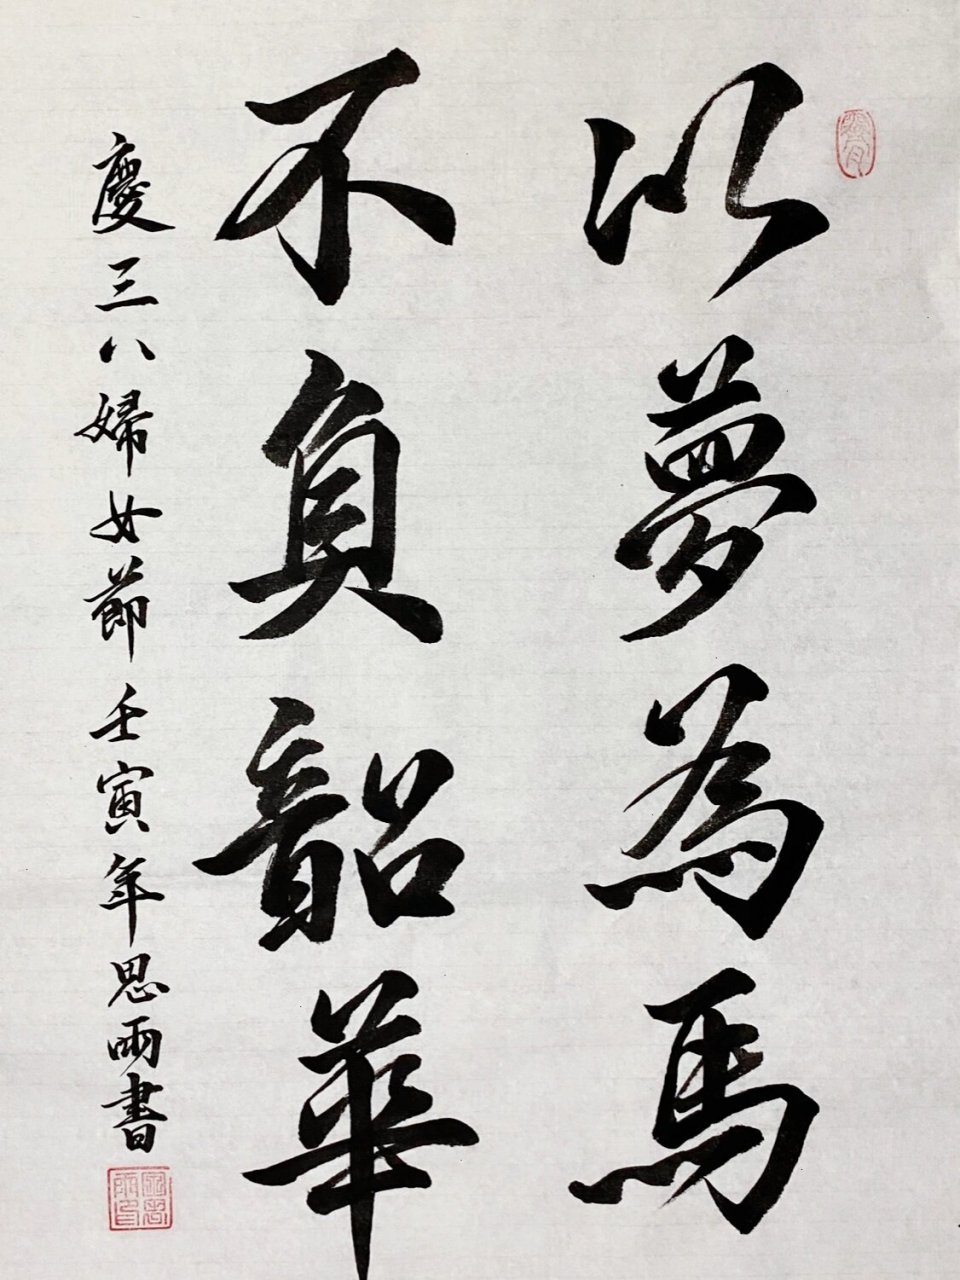 以夢為馬
不負韶華
慶三八婦女節壬寅年思雨書